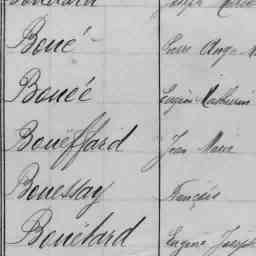 Boué Pierre Ange M
Bouée Eugène Mathurin
Bouëffard Jean Marie
Bouessay François
Bouëtard Eugène Joseph